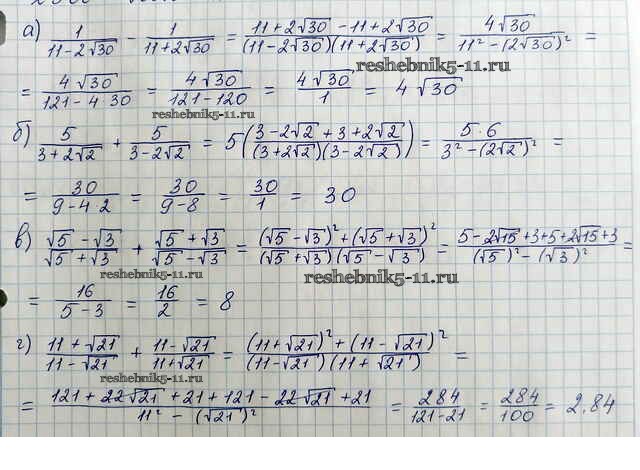 а) 1/(11-2√30) - 1/(11+2√30) = (11+2√30 -11+2√30)/((11-2√30)(11+2√30)) = 4√30/(11²-(2√30)²) =
reshebnik5-11.ru
= 4√30/(121-4·30) = 4√30/(121-120) = 4√30/1 = 4√30
reshebnik5-11.ru
б) 5/(3+2√2) + 5/(3-2√2) = 5((3-2√2+3+2√2)/((3+2√2)(3-2√2))) = 5·6/(3²-(2√2)²) =
= 30/(9-4·2) = 30/(9-8) = 30/1 = 30
в) (√5-√3)/(√5+√3) + (√5+√3)/(√5-√3) = ((√5-√3)²+(√5+√3)²)/((√5+√3)(√5-√3)) = (5-2√15+3+5+2√15+3)/((√5)²-(√3)²) =
reshebnik5-11.ru
reshebnik5-11.ru
= 16/(5-3) = 16/2 = 8
г) (11+√21)/(11-√21) + (11-√21)/(11+√21) = ((11+√21)²+(11-√21)²)/((11-√21)(11+√21)) =
reshebnik5-11.ru
= (121+22√21+21+121-22√21+21)/(11²-(√21)²) = 284/(121-21) = 284/100 = 2.84